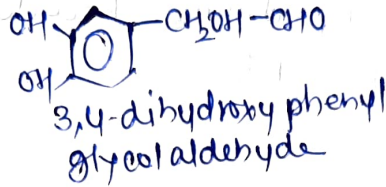 OH
-CH2OH-CHO
OH
3,4-dihydroxy phenyl
glycolaldehyde